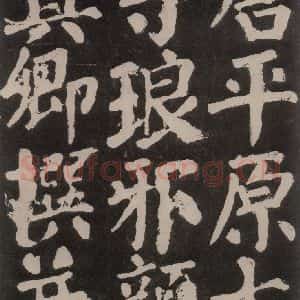 平原太
守琅邪顏
真卿撰并
Shufawang.cn